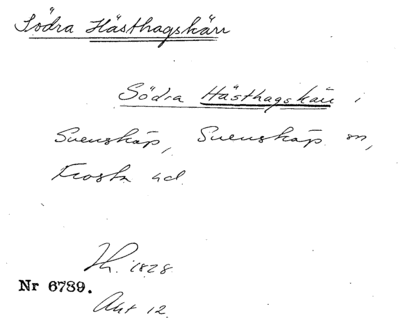 Södra Hästhagskärr
Södra Hästhagskärr i
Svenskóp, Svenskóp sn,
Frosta hd.
Lh. 1828
Nr 6789.
Akt 12.